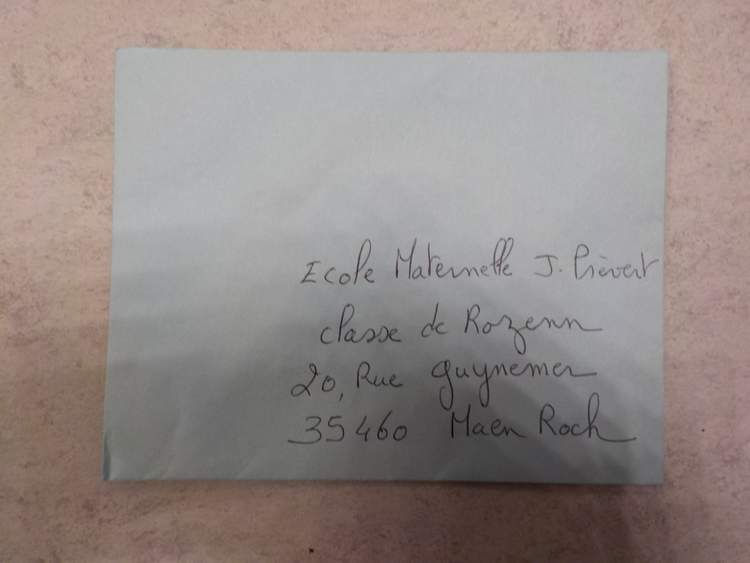 Ecole Maternelle J. Prévert
classe de Rozenn
20, Rue guynemer
35460 Maen Roch